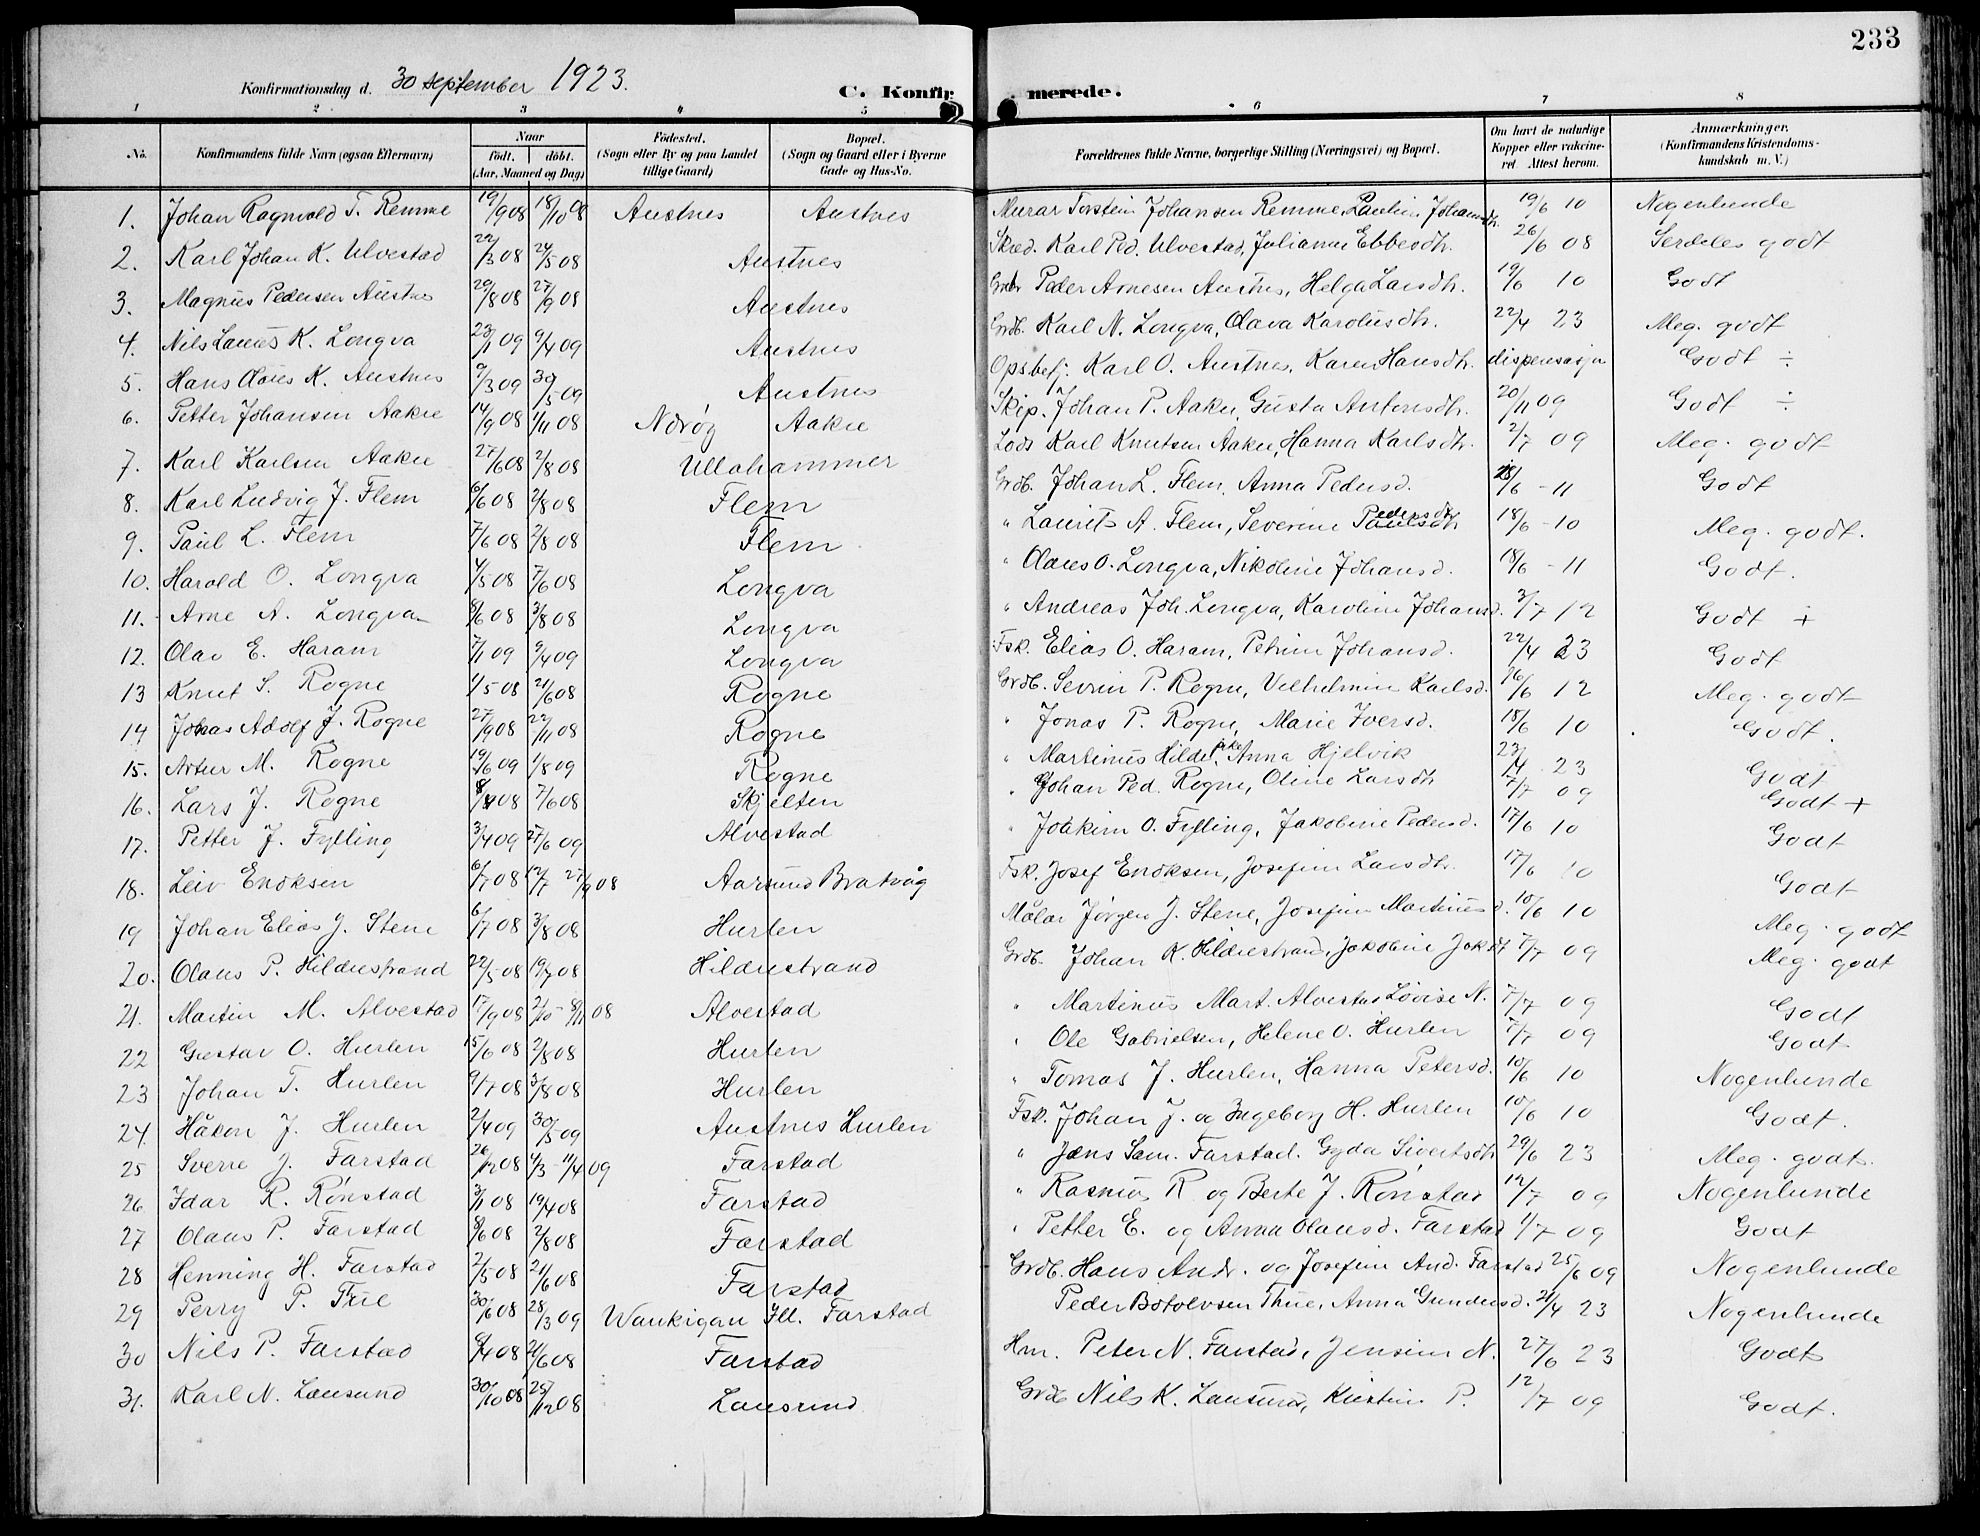 233
Konfirmationsdag d. 30 september 1923.
C. Konfirmerede.
1 2 3 4 5 6 7 8
No. Konfirmandens fulde Navn (ogsaa Efternavn) Naar født. døbt. (Aar, Maaned og Dag) Fødested. (Sogn eller By og paa Landet tillige Gaard) Bopæl. (Sogn og Gaard eller i Byerne Gade og Hus-No. Forældrenes fulde Navne, borgerlige Stilling (Næringsvei) og Bopæl. Om havt de naturlige Kopper eller vakcineret Attest herom. Anmærkninger. (Konfirmandens Kristendomskundskab m. V.)
1. Johan Ragnvald T. Remme 19/9 08 18/10 08 Austnes Austnes Murar Torstein Johansen Remme, Pauline Johansdtr. 19/6 10 Nogenlunde
2. Karl Johan K. Ulvestad 22/3 08 24/5 08 Austnes Skræd. Karl Ped. Ulvestad, Julianne Ebbesdtr. 26/6 08 Serdeles godt
3. Magnus Pedersen Austnes 29/8 08 27/9 08 Austnes Grdbr Peder Arnesen Austnes, Helga Larsdtr. 19/6 10 Godt
4. Nils Larius K. Longva 23/1 09 9/4 09 Austnes Grdb. Karl N. Longva, Olava Karolusdtr. 22/4 23 Meg. godt
5. Hans Olaus K. Austnes 9/3 09 30/5 09 Austnes Opsbetj. Karl O. Austnes, Karen Hansdtr. dispensasjon Godt ÷
6. Petter Johansen Aakre 14/9 08 1/11 08 Nørøy Aakre Skip. Johan P. Aakre, Gusta Antonsdtr. 20/11 09 Godt ÷
7. Karl Karlsen Aakre 27/6 08 2/8 08 Ullahammer Lods Karl Knutsen Aakre, Hanna Karlsdtr. 2/7 09 Meg. godt
8. Karl Ludvig J. Flem 6/6 08 2/8 08 Flem Grdb. Johan L. Flem, Anna Pedersd. 18/6 - 11 Godt
9. Paul L. Flem 7/6 08 2/8 08 Flem " Laurits A. Flem, Severine Pedersdtr 18/6 - 10 Meg. godt.
10. Harald O. Longva 4/5 08 7/6 08 Longva " Olaus O. Longva, Nikoline Johansd. 18/6 - 11 Godt.
11. Arne A. Longva 8/6 08 3/8 08 Longva " Andreas Joh. Longva, Karoline Johansd. 3/7 12 Godt +
12. Olav E. Haram 7/1 09 9/4 09 Longva Fsk. Elias O. Haram, Petrine Johansd. 22/4 23 Godt
13 Knut S. Rogne 1/5 08 21/6 08 Rogne Grdb. Sevrin P. Rogne, Vilhelmine Karlsd. 16/6 12 Meg. godt
14 Johas Adolf J. Rogne 27/9 08 22/11 08 Rogne " Jonas P. Rogne, Marie Iversd. 18/6 10 Godt.
15. Artur M. Rogne 19/6 09 1/8 09 Rogne " Martinus Hilde, pike Anna Hjelvik 23/4 23 Godt
16. Lars J. Rogne 8/4 08 7/6 08 Skjelten " Johan Ped. Rogne, Oline Larsdtr 7/7 09 Godt +
17. Petter J. Fylling 3/4 09 27/6 09 Alvestad " Joakim O. Fylling, Jakobine Pedersd. 17/6 10 Godt
18. Leiv Enoksen 6/7 08 12/7 27/9 08 Aarsund Bratvåg Fsk. Josef Enoksen, Josefine Larsdtr. 17/6 10 Godt
19 Johan Elias J. Stene 6/7 08 3/8 08 Hurlen Målar Jørgen J. Stene, Josefine Martinusd. 10/6 10 Meg. godt
20. Olaus P. Hildrestrand 22/5 08 19/7 08 Hildrestrand Grdb. Johan K. Hildrestrand, Jakobine Jakdt 7/7 09 Meg. godt
21. Martin M. Alvestad 17/9 08 2/10 - 8/11 08 Alvestad " Martinus Mart. Alvestad Lovise N. 7/7 09 Godt
22 Gustav O. Hurlen 15/6 08 2/8 08 Hurlen " Ole Gabrielsen, Helene O. Hurlen 7/7 09 Godt
23 Johan T. Hurlen 9/7 08 3/8 08 Hurlen " Tomas J. Hurlen, Hanna Petersd. 10/6 10 Nogenlunde
24 Håkon J. Hurlen 2/4 09 30/5 09 Austnes Hurlen Fsk. Johan J. og Ingeborg H. Hurlen 10/6 10 Godt.
25 Sverre J. Farstad 26/12 08 1/3 - 11/4 09 Farstad " Jens Sam. Farstad. Gyda Sivertsdtr 29/6 23 Meg. godt.
26 Idar R. Rønstad 3/1 08 19/4 08 Farstad " Rasmus R. og Berte J. Rønstad 12/7 09 Nogenlunde
27 Olaus P. Farstad 8/6 08 2/8 08 Farstad " Petter E. og Anna Olausd. Farstad 1/7 09 Godt
28 Henning H. Farstad 2/5 08 21/6 08 Farstad Grdb. Hans Andr. og Josefine And. Farstad 25/6 09 Nogenlunde
29 Perry P. Tue 30/6 08 28/3 09 Waukigan Ill. Farstad Peder Botolvsen Thue, Anna Gundersd. 21/4 23 Nogenlunde
30 Nils P. Farstad 6/4 08 20/6 08 Farstad Hm. Peter N. Farstad, Jensine N. 27/6 23 Godt
31. Karl N. Lausund 30/10 08 25/12 08 Lausund Grdb Nils K. Lausund, Kirstine P. 12/7 09 Godt.